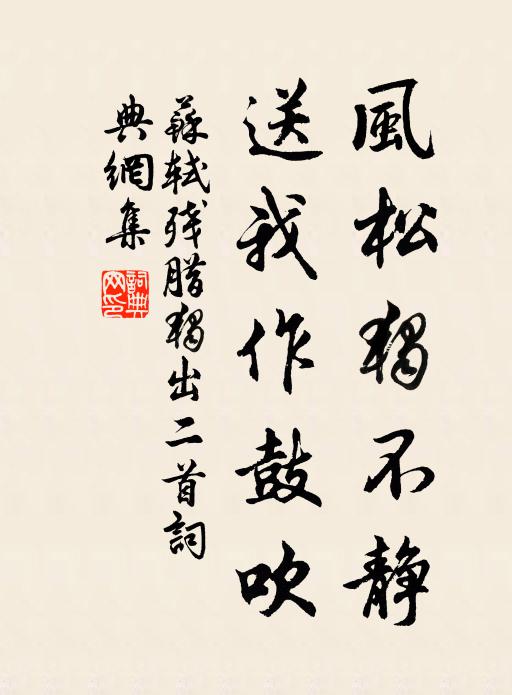 風松獨不静
送我作鼓吹
蘇軾残腊獨出二首詞
典網集
詞典网印